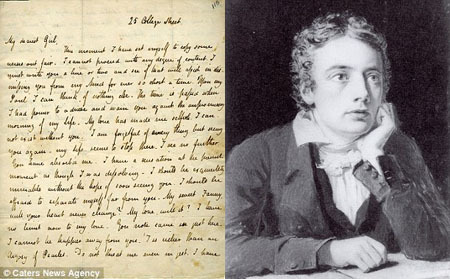 25 College Street.
My dearest Girl,
This moment I have set myself to copy some
verses out fair. I cannot proceed with any degree of content. I
must write you a line or two and see if that will assist in dis-
missing you from my Mind for ever so short a time. Upon my
Soul I can think of nothing else. The time is passed when
I had power to advise and warn you against the unpromising
morning of my Life. My love has made me selfish. I can-
not exist without you. I am forgetful of every thing but seeing
you again. my Life seems to stop there. I see no further.
You have absorb'd me. I have a sensation at the present
moment as though I was dissolving. I should be exquisitely
miserable without the hope of soon seeing you. I should be
afraid to separate myself far from you. My sweet Fanny
will your heart never change? My love will it? I have
no limit now to my love. You note came in just here.
I cannot be happier away from you. Tis richer than an
Argosy of Pearles. Do not threat me even in jest. I have
© Caters News Agency